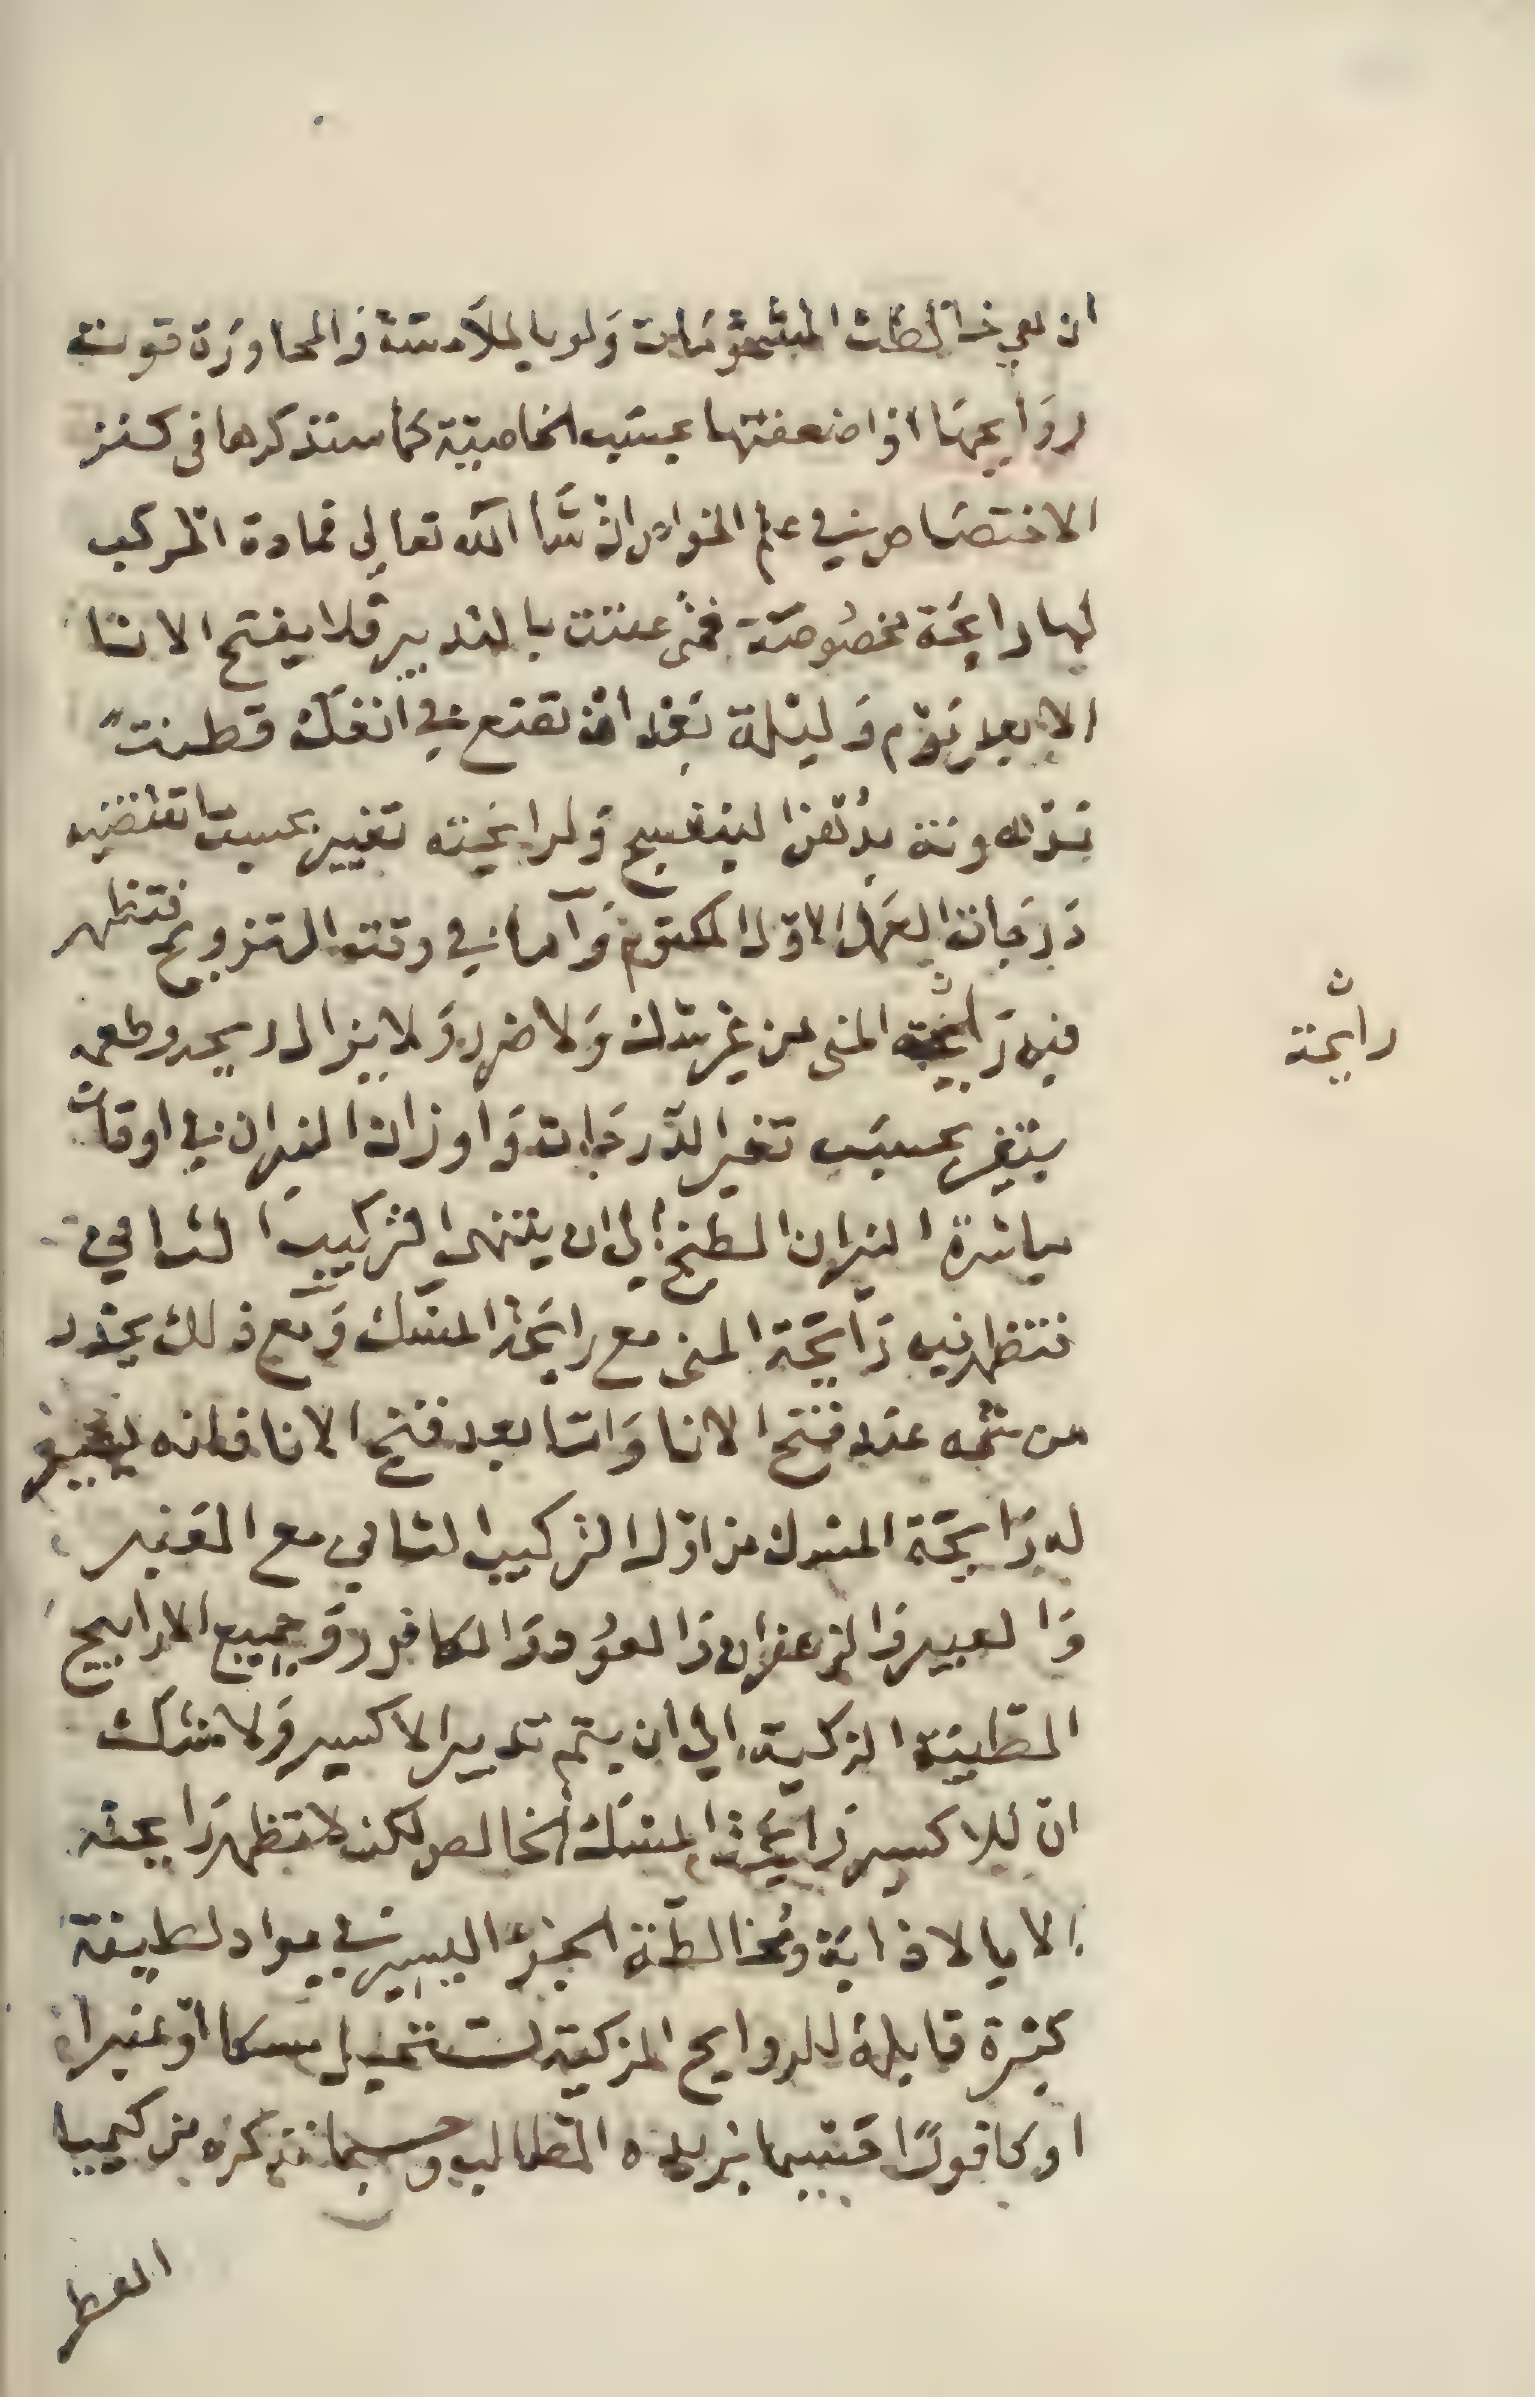 ان هي خالطت المشمومات ولو بالملامسة والمجاورة قوت
روايحها او اضعفتها بحسب الخاصية كما سنذكرها في كنز
الاختصاص في علم الخواص ان شا الله تعالى فمادة المركب
لها رايحة مخصوصة فمتى عفنت بالتدبير فلا يفتح الانا
الا بعد يوم وليلة بعد ان تضع في انفك قطنت
بدهونة بدهن البنفسج ولرايحته تغيير بحسب ما تقتضيه
درجات العمل الاول المكتوم واما في وقت التزويج فتظهر
فيه رايحة المنى من غير شك ولا ضرر ولا يزال ريحه وطعمه
يتغير بحسب تغير الدرجات واوزان النيران في اوقات
مباشرة النيران الطبخ الى ان ينتهى التركيب الثاني
فتظهر فيه رايحة المنى مع رايحة المسك ومع ذلك يحذر
من شمه عند فتح الانا واما بعد فتح الانا فانه يصير
له رايحة المسك من اول التركيب الثاني مع العنبر
والعبير والزعفران والعود والكافور وجميع الاراييح
الطيبة الزكية الى ان يتم تدبير الاكسير ولا شك
ان للاكسير رايحة المسك الخالص لكنه لا تظهر رايحته
الا بالاذابة ومخالطة الجزء اليسير في مواد لطيفة
كثيرة قابلة للروايح الزكية لتستحيل مسكا او عنبرا
او كافورا حسبما يريده الطالب وحسبما نذكره من كيميا
العطر
رايحة
ن